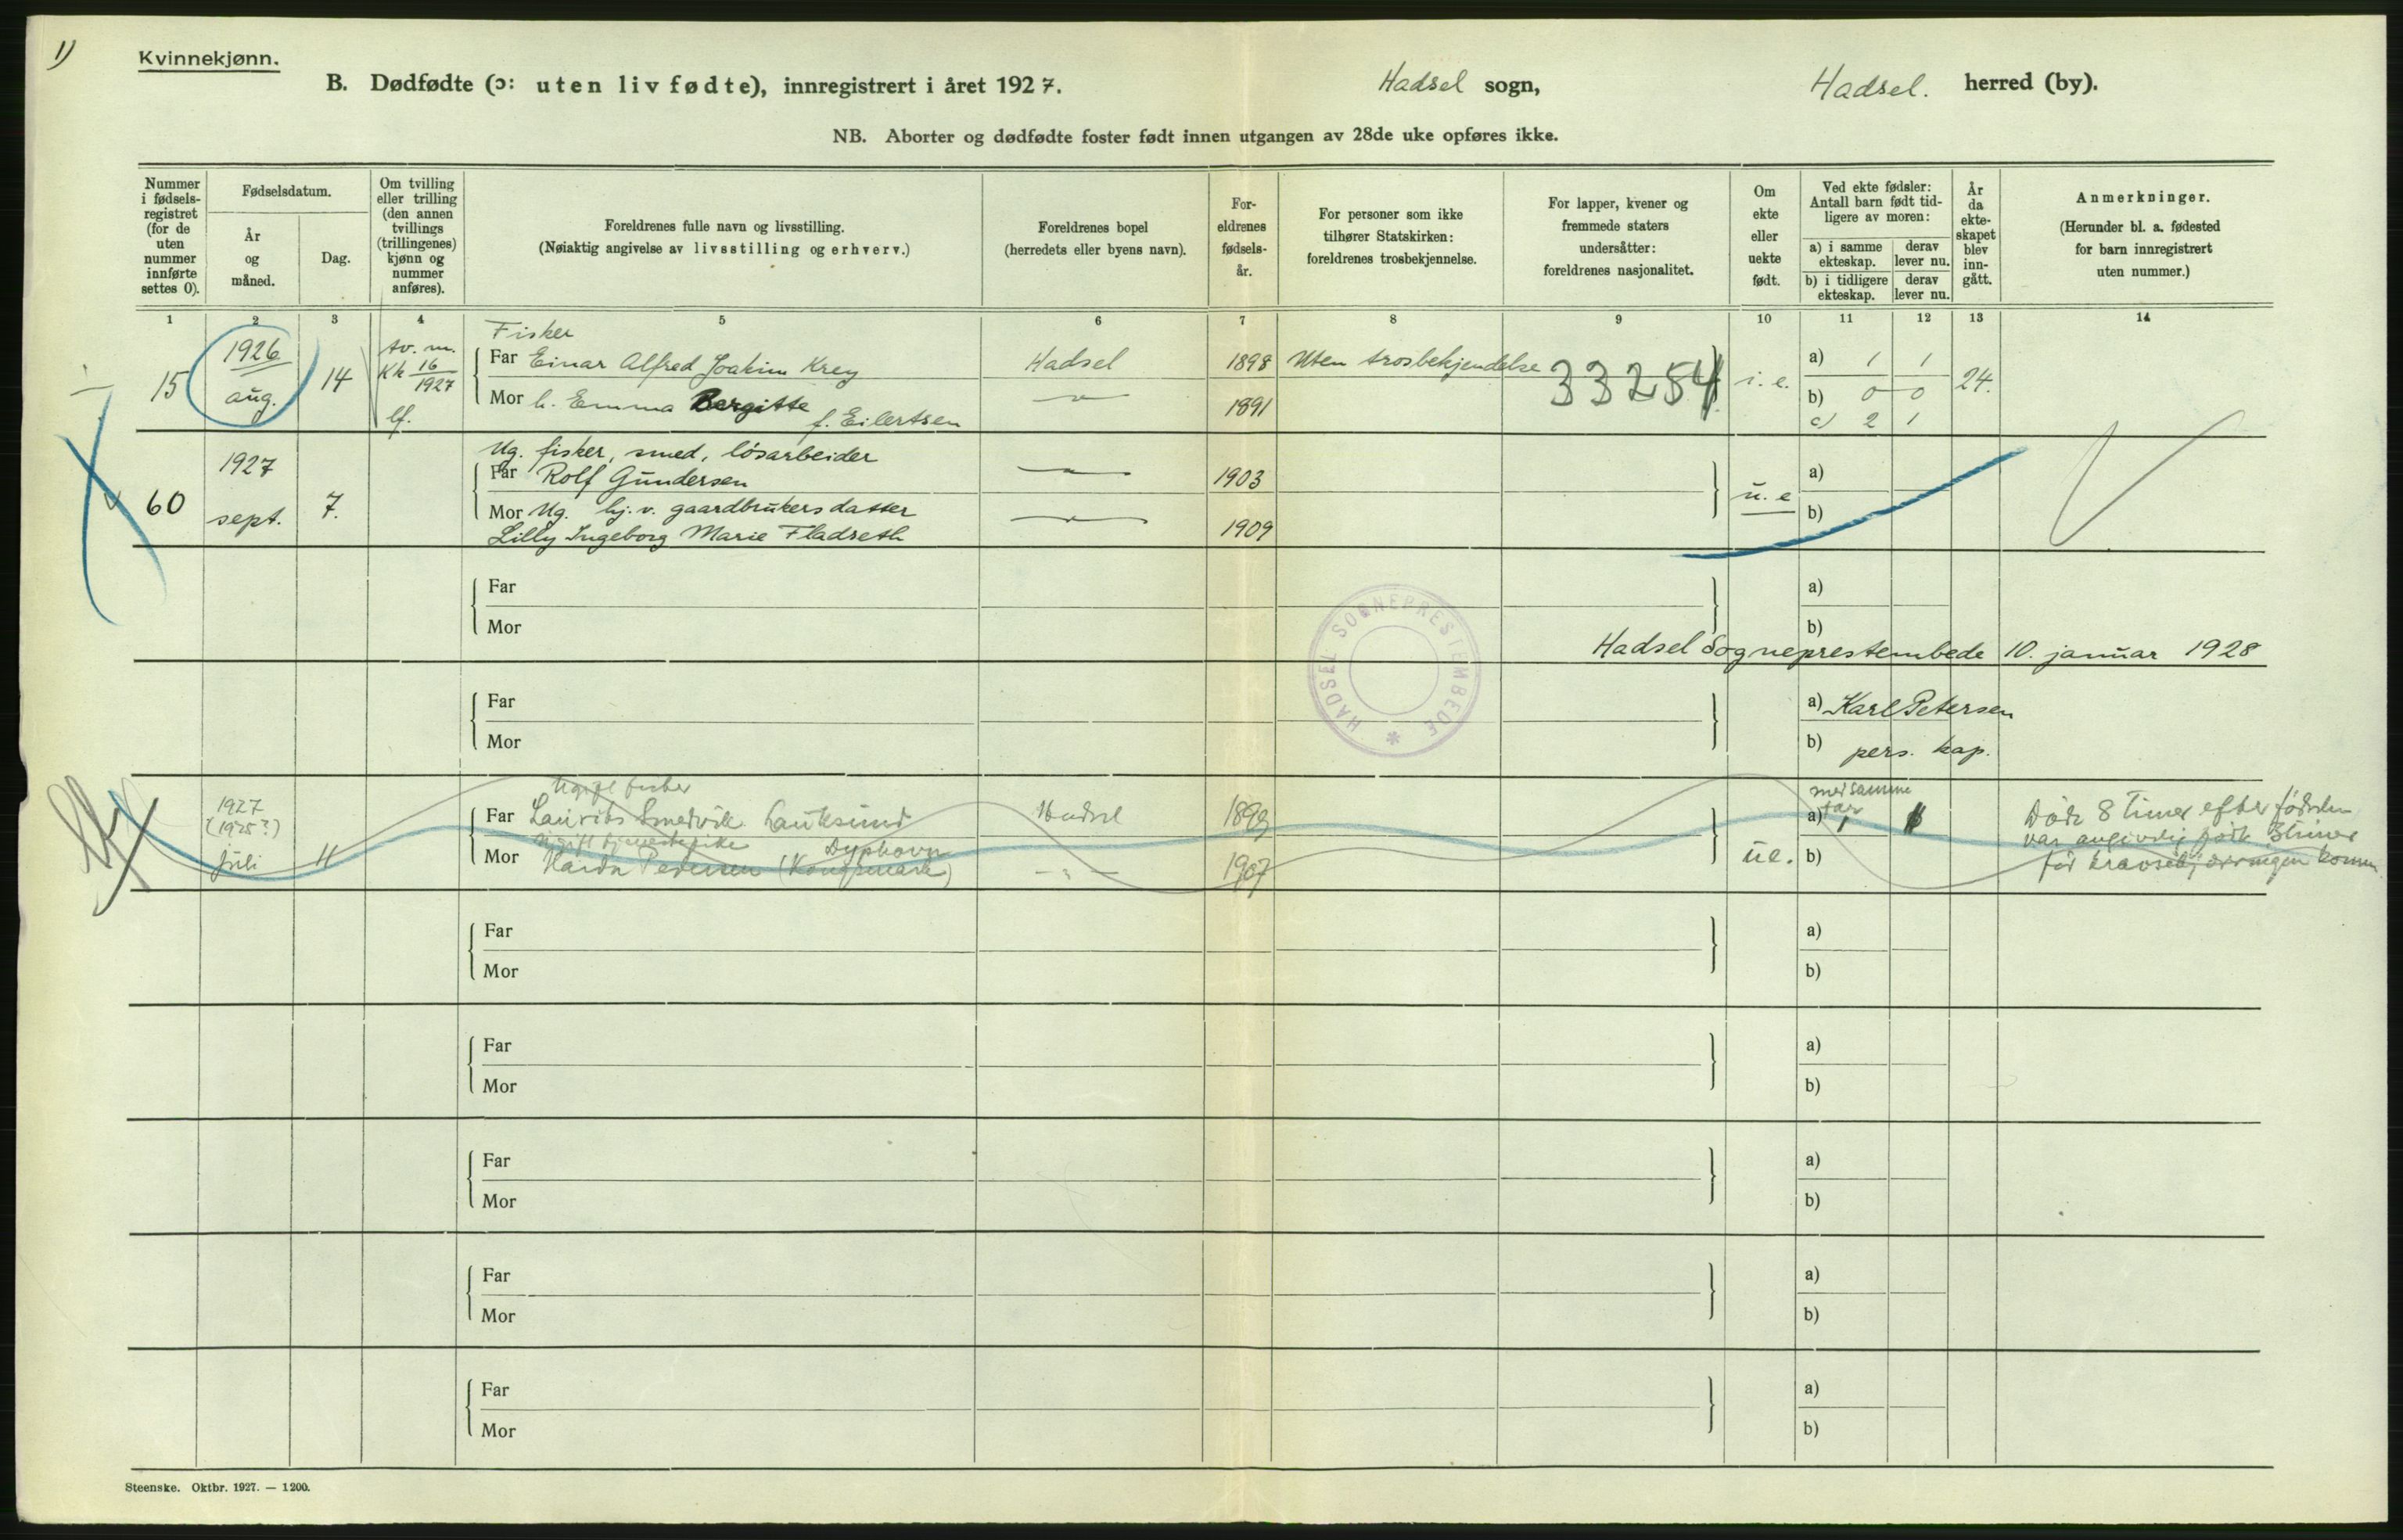 1)
Kvinnekjønn.
B. Dødfødte (ɔ: uten liv fødte), innregistrert i året 1927.
Hadsel sogn,
Hadsel. herred (by).
NB. Aborter og dødfødte foster født innen utgangen av 28de uke opføres ikke.
Nummer i fødsels-registret (for de uten nummer innførte settes 0).
Fødselsdatum.
År og måned.
Dag.
Om tvilling eller trilling (den annen tvillings (trillingenes) kjønn og nummer anføres).
Foreldrenes fulle navn og livsstilling.
(Nøiaktig angivelse av livsstilling og erhverv.)
Foreldrenes bopel
(herredets eller byens navn).
For-eldrenes fødsels-år.
For personer som ikke tilhører Statskirken: foreldrenes trosbekjennelse.
For lapper, kvener og fremmede staters undersåtter: foreldrenes nasjonalitet.
Om ekte eller uekte født.
Ved ekte fødsler: Antall barn født tid-ligere av moren:
a) i samme ekteskap.
derav lever nu.
b) i tidligere ekteskap.
derav lever nu.
År da ekte-skapet blev inn-gått.
Anmerkninger.
(Herunder bl. a. fødested for barn innregistrert uten nummer.)
1 2 3 4 5 6 7 8 9 10 11 12 13 14
Fisker
15 1926 aug. 14 tv. m. Kk 16/1927 lf.
Far Einar Alfred Joakim Krey Hadsel 1898 Uten trosbekjendelse
33254
i. e. a) 1 1
24.
Mor h. Emma Bergitte f. Eilertsen 1891
b) 0 0
c) 2 1
Ug. fisker, smed, løsarbeider
60 1927 sept. 7.
Far Rolf Gundersen 1903
a)
u. e
Mor Ug. hj. v. gaardbrukersdatter
Lilly Ingeborg Marie Fladseth 1909
b)
Far a)
Mor b)
HADSEL SOGNEPRESTEMBEDE
Hadsel Sogneprestembede 10. januar 1928
Far a) Karl Petersen
Mor b) pers. kap.
Ugift fisker
1927 (1925?) juli 11
Far Laurits Hadsel 1899
med samme far
a) 1
Døde 8 Timer efter fødselen
var angivelig født
Ugift tjenestepike
Mor Pedersen 1907
ue. b)
før kommen
Far a)
Mor b)
Far a)
Mor b)
Far a)
Mor b)
Far a)
Mor b)
Far a)
Mor b)
Steenske. Oktbr. 1927. — 1200.